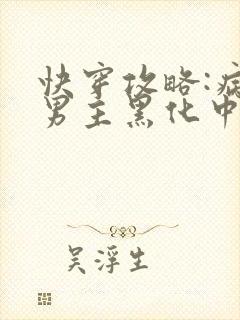 快穿攻略:病
男主黑化中
吴浮生